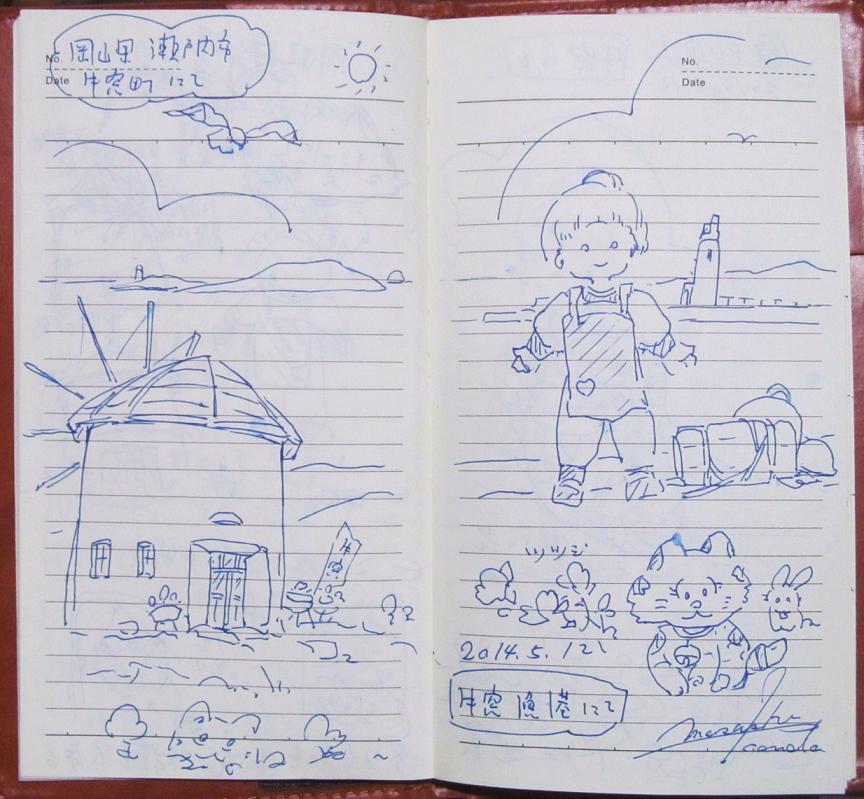 No.
Date
岡山県 瀬戸内市
牛窓町 にて
No.
Date
ツツジ
2014.5.12
牛窓 漁港 にて